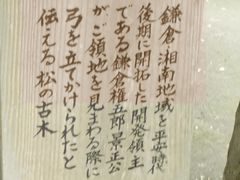 鎌倉・湘南地域を平安時代
後期に開拓した開発領主
である鎌倉権五郎景正公
がご領地を見まわる際に
弓を立てかけられたと
伝える松の古木